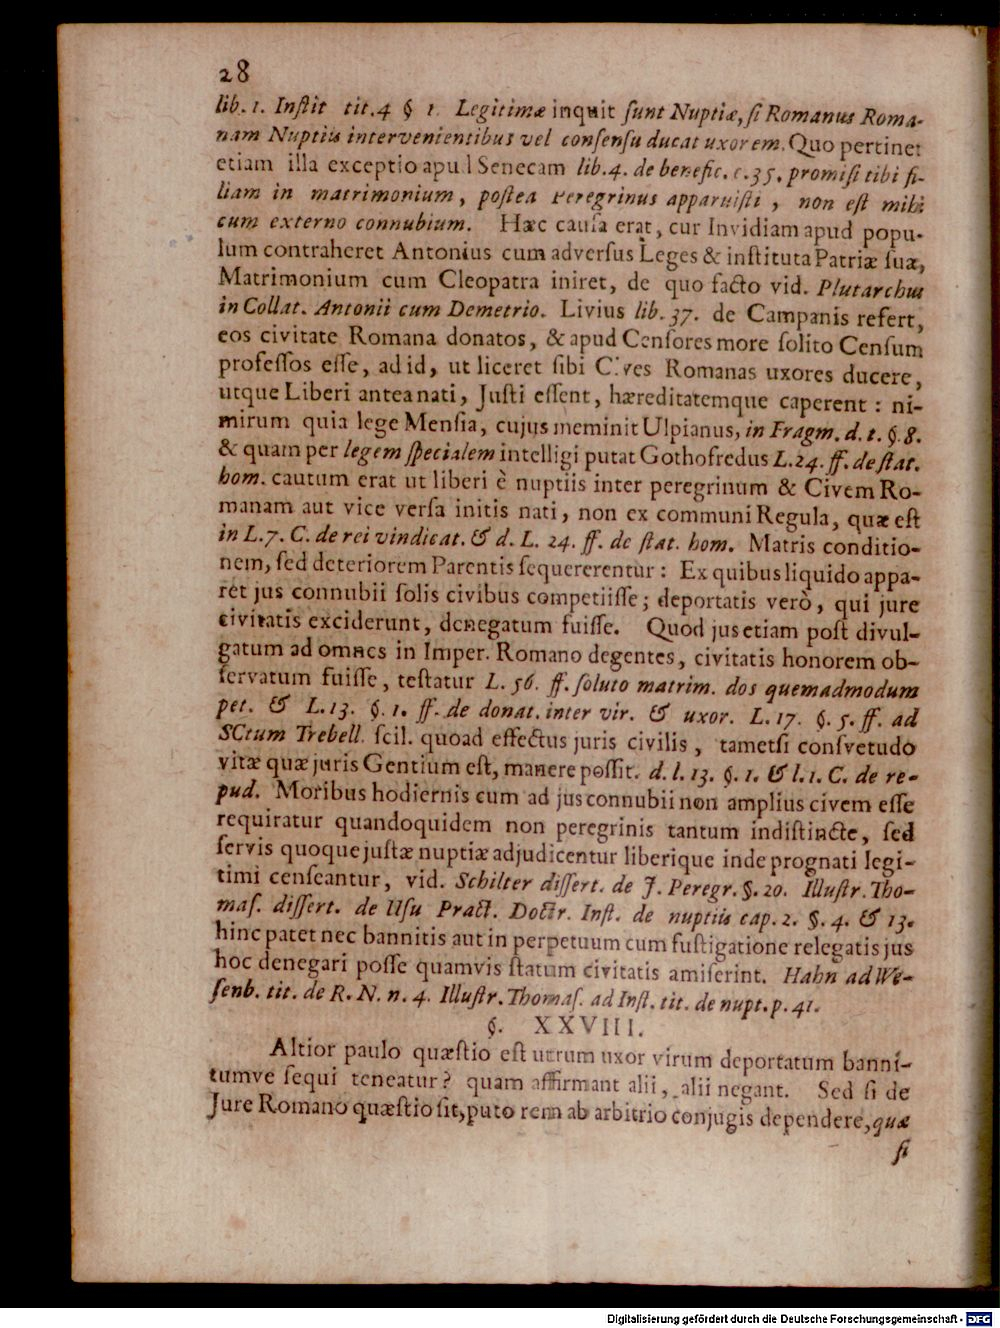 28
lib. 1. Inſtit tit. 4 § 1. Legitimæ inquit ſunt Nuptiæ, ſi Romanus Roma-
nam Nuptiis intervenientibus vel conſenſu ducat uxorem. Quo pertinet
etiam illa exceptio apud Senecam lib. 4. de benefic. c. 35. promiſi tibi fi-
liam in matrimonium, poſtea peregrinus apparuiſti, non eſt mihi
cum externo connubium. Hæc cauſa erat, cur Invidiam apud popu-
lum contraheret Antonius cum adverſus Leges & inſtituta Patriæ ſuæ,
Matrimonium cum Cleopatra iniret, de quo facto vid. Plutarchus
in Collat. Antonii cum Demetrio. Livius lib. 37. de Campanis refert,
eos civitate Romana donatos, & apud Cenſores more ſolito Cenſum
profeſſos eſſe, ad id, ut liceret ſibi Cives Romanas uxores ducere,
utque Liberi antea nati, Juſti eſſent, hæreditatemque caperent: ni-
mirum quia lege Menſia, cujus meminit Ulpianus, in Fragm. d. t. §. 8.
& quam per legem ſpecialem intelligi putat Gothofredus L. 24. ff. de ſtat.
hom. cautum erat ut liberi è nuptiis inter peregrinum & Civem Ro-
manam aut vice verſa initis nati, non ex communi Regula, quæ eſt
in L. 7. C. de rei vindicat. & d. L. 24. ff. de ſtat. hom. Matris conditio-
nem, ſed deteriorem Parentis ſequererentur: Ex quibus liquido appa-
ret jus connubii ſolis civibus competiiſſe; deportatis verò, qui jure
civitatis exciderunt, denegatum fuiſſe. Quod jus etiam poſt divul-
gatum ad omnes in Imper. Romano degentes, civitatis honorem ob-
ſervatum fuiſſe, teſtatur L. 56. ff. ſoluto matrim. dos quemadmodum
pet. & L. 13. §. 1. ff. de donat. inter vir. & uxor. L. 17. §. 5. ff. ad
SCtum Trebell. ſcil. quoad effectus juris civilis, tametſi conſvetudo
vitæ quæ juris Gentium eſt, manere poſſit. d. l. 13. §. 1. & l. 1. C. de re-
pud. Moribus hodiernis cum ad jus connubii non amplius civem eſſe
requiratur quandoquidem non peregrinis tantum indiſtincte, ſed
ſervis quoque juſtæ nuptiæ adjudicentur liberique inde prognati legi-
timi cenſeantur, vid. Schilter diſſert. de J. Peregr. §. 20. Illuſtr. Tho-
maſ. diſſert. de Uſu Pract. Doctr. Inſt. de nuptiis cap. 2. §. 4. & 13.
hinc patet nec bannitis aut in perpetuum cum fuſtigatione relegatis jus
hoc denegari poſſe quamvis ſtatum civitatis amiſerint. Hahn ad We-
ſenb. tit. de R. N. n. 4. Illuſtr. Thomaſ. ad Inſt. tit. de nupt. p. 41.
§. XXVIII.
Altior paulo quæſtio eſt utrum uxor virum deportatum banni-
tumve ſequi teneatur? quam affirmant alii, alii negant. Sed ſi de
Jure Romano quæſtio ſit, puto rem ab arbitrio conjugis dependere, quæ
ſi
Digitalisierung gefördert durch die Deutsche Forschungsgemeinschaft - DFG